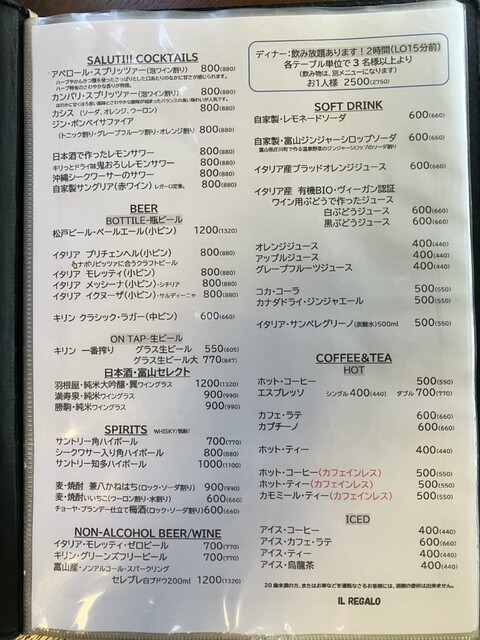 SALUTI!! COCKTAILS
アペロール・スプリッツァー(泡ワイン割り) 800(880)
カンパリ・スプリッツァー(泡ワイン割り) 800(880)
カシス (ソーダ、オレンジ、ウーロン) 800(880)
ジン・ボンベイサファイア
(トニック割り・グレープフルーツ割り・オレンジ割り) 800(880)
日本酒で作ったレモンサワー 800(880)
キリっとドライ味 鬼おろしレモンサワー 800(880)
沖縄シークワーサーのサワー 800(880)
自家製サングリア(赤ワイン) レガーロ定番。 800(880)
BEER
BOTTILE-瓶ビール
松戸ビール・ペールエール(小ビン) 1200(1320)
イタリア プリチェンヘル(小ビン) 800(880)
ナポリピッツァに合うクラフトビール
イタリア モレッティ(小ビン) 800(880)
イタリア メッシーナ(小ビン)・シチリア 800(880)
イタリア イクヌーザ(小ビン)・サルディーニャ 800(880)
キリン クラシック・ラガー(中ビン) 600(660)
ON TAP-生ビール
キリン 一番搾り グラス生ビール 550(605)
グラス生ビール大 770(847)
日本酒・富山セレクト
羽根屋・純米大吟醸・翼ワイングラス 1200(1320)
満寿泉・純米ワイングラス 900(990)
勝駒・純米ワイングラス 900(990)
SPIRITS WHISKY/焼酎/
サントリー角ハイボール 700(770)
シークワサー入り角ハイボール 800(880)
サントリー知多ハイボール 1000(1100)
麦・焼酎 兼八かねはち(ロック・ソーダ割り) 900(990)
麦・焼酎いいちこ(ウーロン割り・水割り) 600(660)
チョーヤ・ブランデー仕立て梅酒(ロック・ソーダ割り) 600(660)
NON-ALCOHOL BEER/WINE
イタリア・モレッティ・ゼロビール 700(770)
キリン・グリーンズフリービール 700(770)
富山産・ノンアルコール・スパークリング
セレブレ白ブドウ200ml 1200(1320)
ディナー:飲み放題あります!2時間(LO15分前)
各テーブル単位で3名様以上より
(飲み物は、別メニューになります)
お1人様 2500(2750)
SOFT DRINK
自家製・レモネードソーダ 600(660)
自家製・富山ジンジャーシロップソーダ 600(660)
イタリア産ブラッドオレンジジュース 600(660)
イタリア産 有機BIO・ヴィーガン認証
ワイン用ぶどうで作ったジュース
白ぶどうジュース 600(660)
黒ぶどうジュース 600(660)
オレンジジュース 400(440)
アップルジュース 400(440)
グレープフルーツジュース 400(440)
コカ・コーラ 500(550)
カナダドライ・ジンジャエール 500(550)
イタリア・サンペレグリーノ(炭酸水)500ml 500(550)
COFFEE&TEA
HOT
ホット・コーヒー 500(550)
エスプレッソ シングル 400(440) ダブル 700(770)
カフェ・ラテ 600(660)
カプチーノ 600(660)
ホット・ティー 400(440)
ホット・コーヒー(カフェインレス) 500(550)
ホット・ティー(カフェインレス) 500(550)
カモミール・ティー(カフェインレス) 500(550)
ICED
アイス・コーヒー 400(440)
アイス・カフェ・ラテ 600(660)
アイス・ティー 400(440)
アイス・烏龍茶 400(440)
20歳未満の方、またはお車などを運転なさるお客様には、酒類の提供は出来ません。
IL REGALO